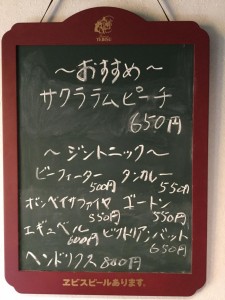 YEBISU
~おすすめ~
サクララムピーチ
650円
~ジントニック~
ビーフィーター タンカレー
500円 550円
ボンベイサファイヤ ゴードン
550円 550円
エギュベル ビクトリアンバット
600円 650円
ヘンドリクス 800円
ヱビスビールあります。